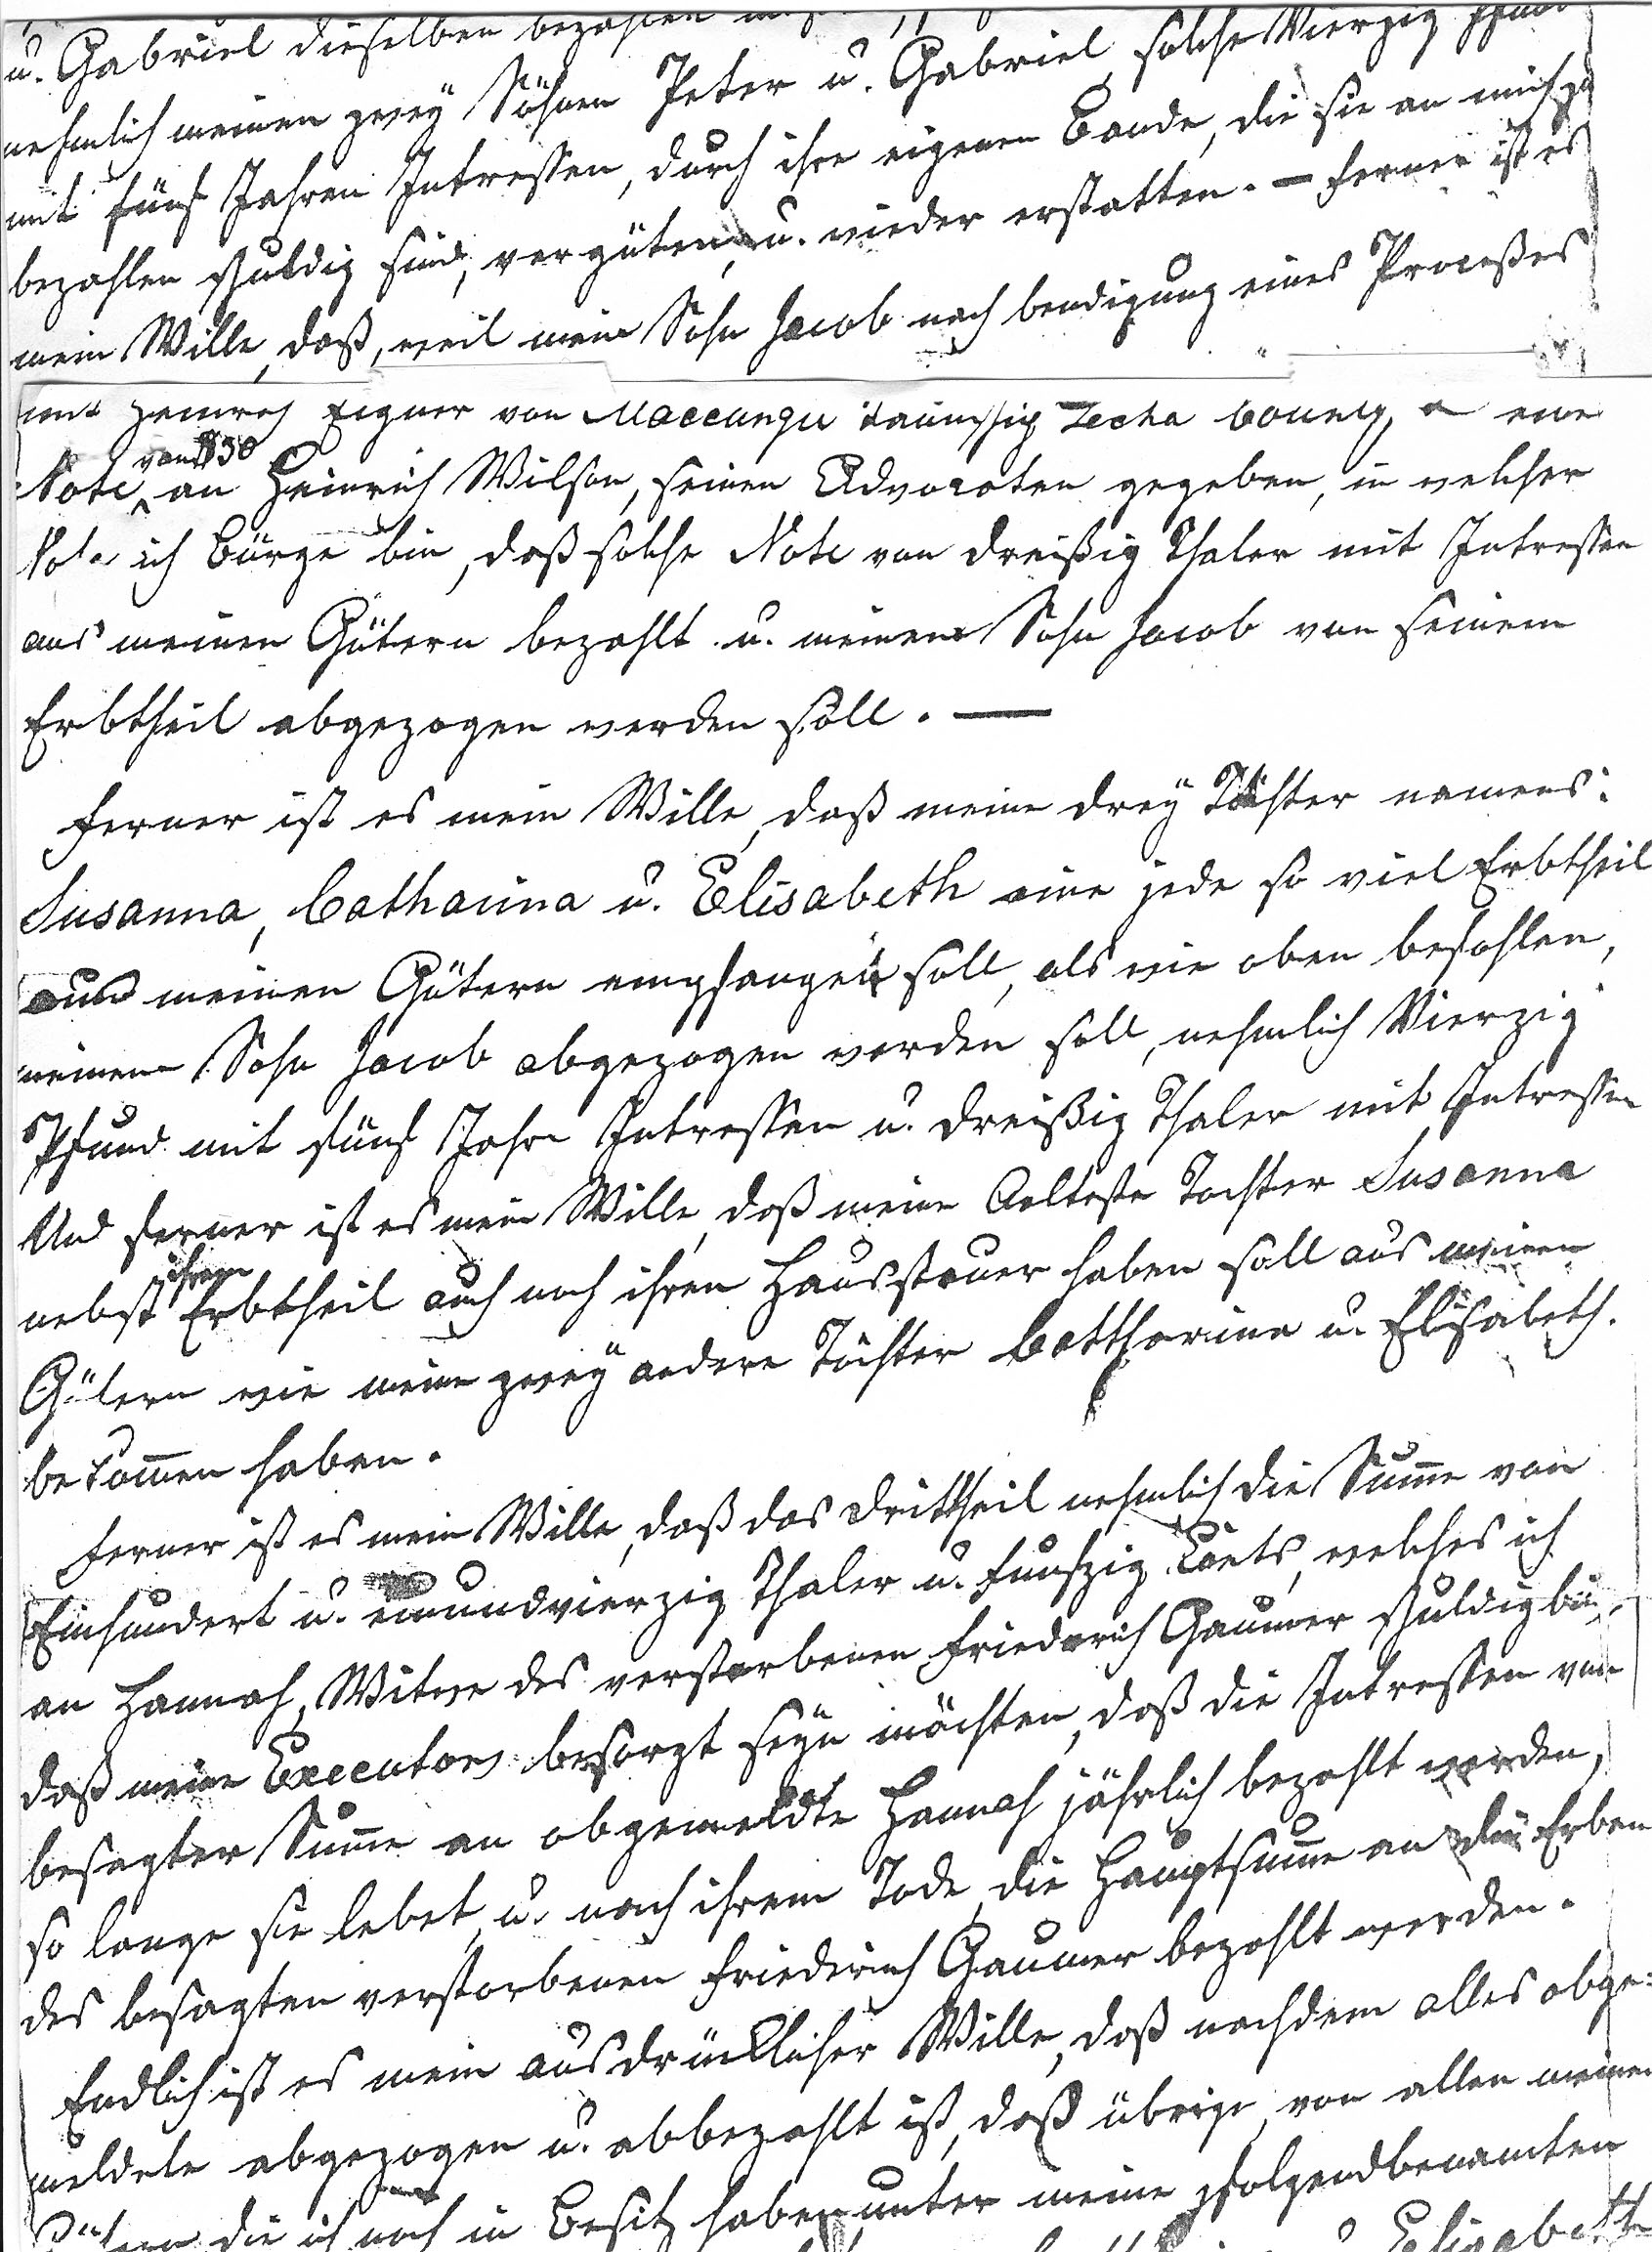 u. Gabriel dieselben bezahlen
nehmlich meinen zwey Söhnen Peter u. Gabriel, solche Vierzig Pfund
mit fünf Jahren Intressen, durch ihre eigenen Bonde, die sie an mich zu
bezahlen schuldig sind, vergüten, u. wieder erstatten. — Ferner ist es
mein Wille, daß, weil mein Sohn Jacob nach bendigung eines Proceßes
mit Heinrich Eigner von Maccungie Taunschip Lecha County, eine
Note von $30 an Heinrich Wilson, seinen Advocaten gegeben, in welcher
Note ich Bürge bin, daß solche Note von dreißig Thaler mit Intressen
aus meinen Gütern bezahlt u. meinem Sohn Jacob von seinem
Erbtheil abgezogen werden soll. —
Ferner ist es mein Wille, daß meine drey Töchter namens:
Susanna, Catharina u. Elisabeth eine jede so viel Erbtheil
aus meinen Gütern empfangen soll, als wie oben befohlen,
meinem Sohn Jacob abgezogen werden soll, nehmlich Vierzig
Pfund mit fünf Jahre Intressen u. dreißig Thaler mit Intressen
Und ferner ist es mein Wille, daß meine Aelteste Tochter Susanna
nebst ihrem Erbtheil auch noch ihren Haussteuer haben soll aus meinen
Gütern wie meine zwey andere Töchter Cattharina u. Elisabeth.
bekommen haben.
Ferner ist es mein Wille, daß das Drittheil nehmlich die Summe von
Einhundert u. einundvierzig Thaler u. funfzig Cents, welches ich
an Hannah, Witwe des verstorbenen Friederich Gaumer schuldig bin,
daß meine Executors besorgt seyn möchten, daß die Intressen von
besagter Summe an obgemeldte Hannah jährlich bezahlt werden,
so lange sie lebet, u. nach ihrem Tode, die Hauptsumme an die Erben
des besagten verstorbenen Friederich Gaumer bezahlt werden.
Endlich ist es mein ausdrücklicher Wille, daß nachdem alles obge-
meldete abgezogen u. abbezahlt ist, daß übrige, von allen meinen
Gütern die ich noch in Besitz haben unter meine folgendbenamten
Elisabeth